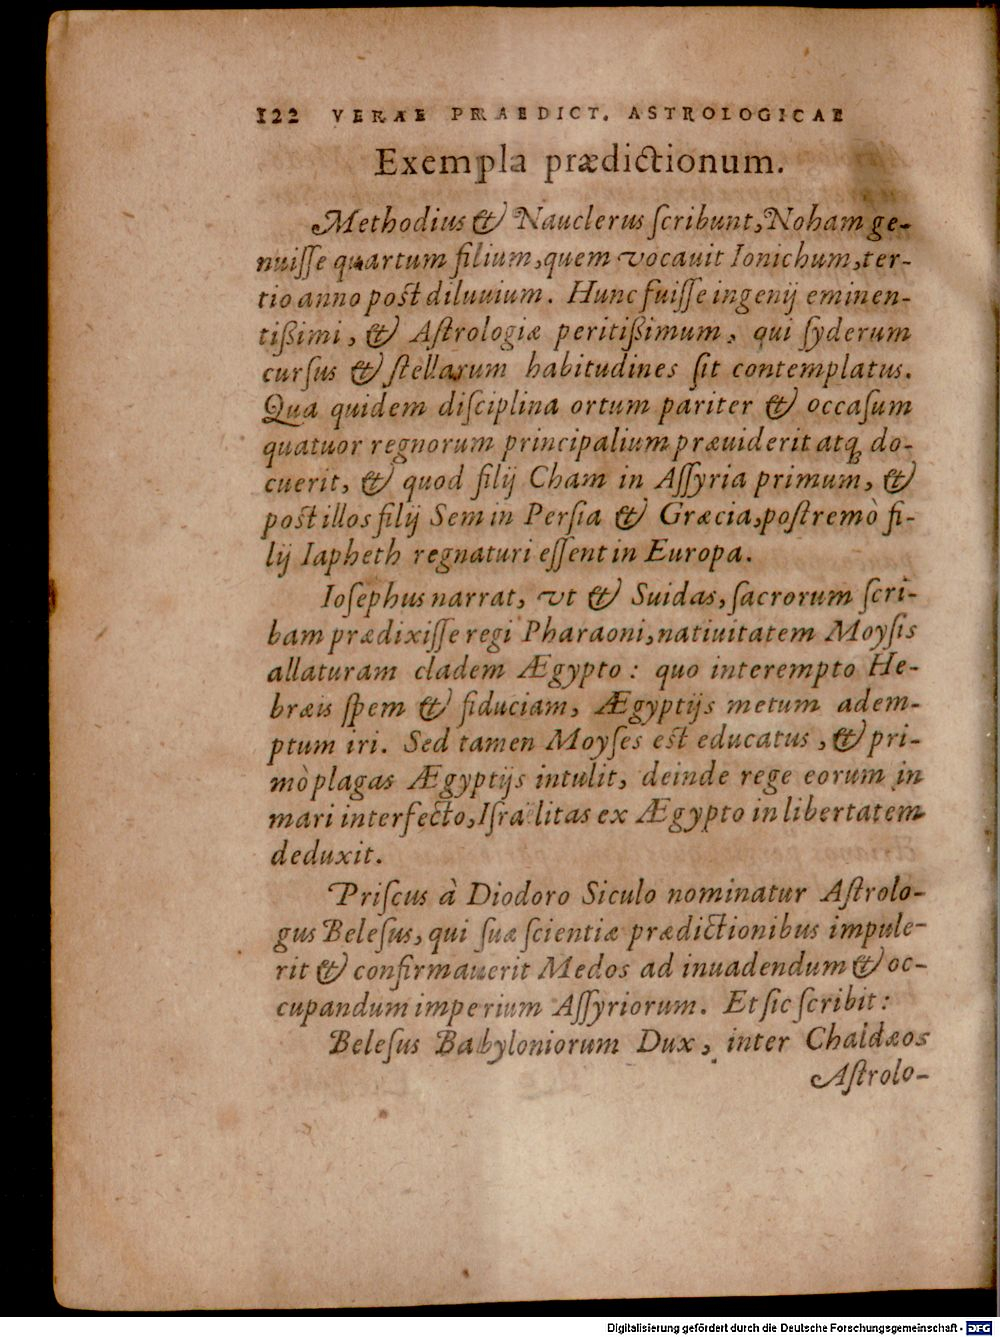 122 VERAE PRAEDICT. ASTROLOGICAE
Exempla prædictionum.
Methodius & Nauclerus ſcribunt, Noham ge-
nuiſſe quartum filium, quem vocauit Ionichum, ter-
tio anno post diluuium. Hunc fuiſſe ingenij eminen-
tißimi, & Aſtrologiæ peritißimum, qui ſyderum
curſus & ſtellarum habitudines ſit contemplatus.
Qua quidem diſciplina ortum pariter & occaſum
quatuor regnorum principalium præuiderit atq; do-
cuerit, & quod filij Cham in Aſſyria primum, &
post illos filij Sem in Perſia & Græcia, poſtremò fi-
lij Iapheth regnaturi eſſent in Europa.
Ioſephus narrat, vt & Suidas, ſacrorum ſcri-
bam prædixiſſe regi Pharaoni, natiuitatem Moyſis
allaturam cladem Ægypto: quo interempto He-
bræis ſpem & fiduciam, Ægyptijs metum adem-
ptum iri. Sed tamen Moyſes est educatus, & pri-
mò plagas Ægyptijs intulit, deinde rege eorum in
mari interfecto, Iſraëlitas ex Ægypto in libertatem
deduxit.
Priſcus à Diodoro Siculo nominatur Aſtrolo-
gus Beleſus, qui ſuæ ſcientiæ prædictionibus impule-
rit & confirmauerit Medos ad inuadendum & oc-
cupandum imperium Aſſyriorum. Et ſic ſcribit:
Beleſus Babyloniorum Dux, inter Chaldæos
Aſtrolo-
Digitalisierung gefördert durch die Deutsche Forschungsgemeinschaft - DFG